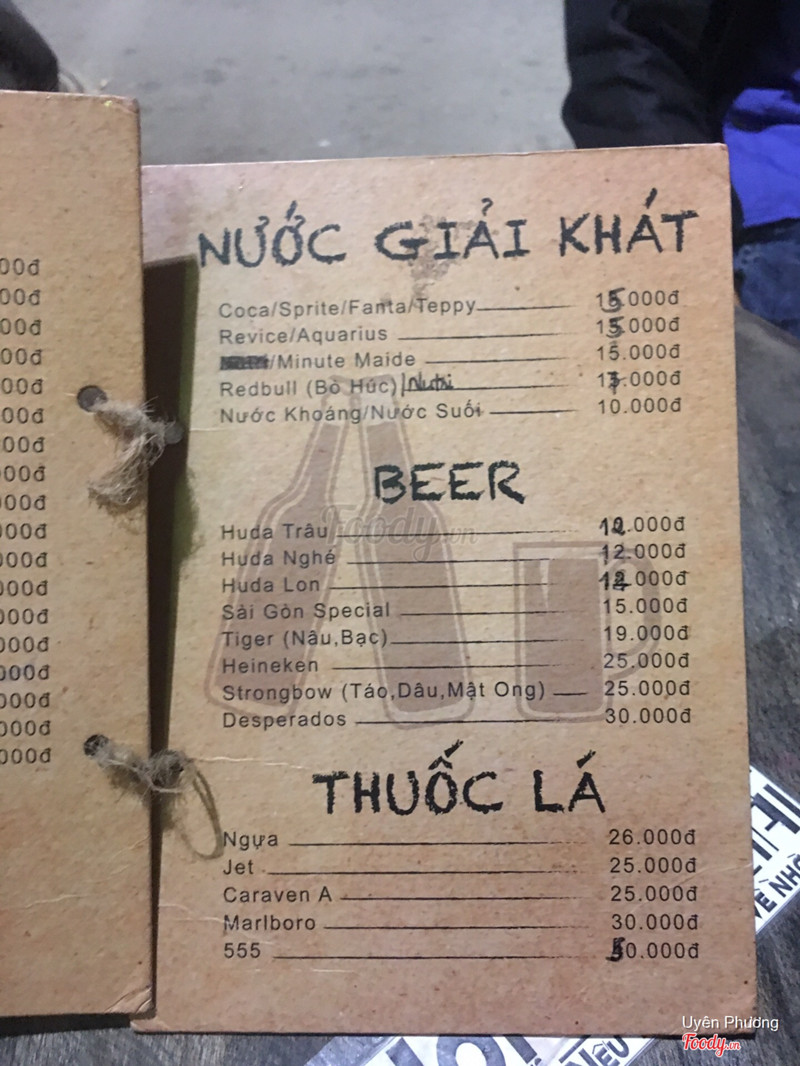 00đ
000đ
000đ
000đ
000đ
000đ
000đ
000đ
000đ
000đ
000đ
000đ
000đ
000đ
000đ
000đ
000đ
000đ
NƯỚC GIẢI KHÁT
Coca/Sprite/Fanta/Teppy 15.000đ
Revice/Aquarius 15.000đ
/Minute Maide 15.000đ
Redbull (Bò Húc)/Nutri .000đ
Nước Khoáng/Nước Suối 10.000đ
BEER
Huda Trâu .000đ
Huda Nghé 12.000đ
Huda Lon .000đ
Sài Gòn Special 15.000đ
Tiger (Nâu,Bạc) 19.000đ
Heineken 25.000đ
Strongbow (Táo,Dâu,Mật Ong) 25.000đ
Desperados 30.000đ
Foody.vn
THUỐC LÁ
Ngựa 26.000đ
Jet 25.000đ
Caraven A 25.000đ
Marlboro 30.000đ
555 50.000đ
VỀ NHỚ
Uyên Phương
Foody.vn